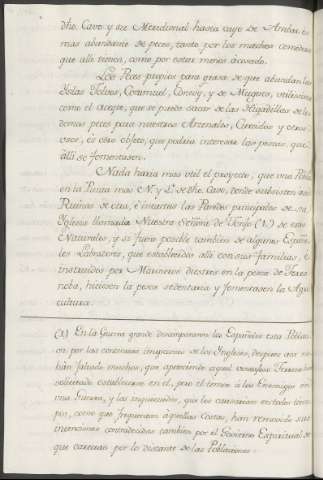 dho. Cavo y ase Meridional hasta cuyo de Arribas es
mas abundante de peces, tanto por los muchos comederos
que alli tienen, como por estar menos acosado.
Los Peces propios para grasa de que abundan las
Islas Holvos, Contuniel, Conoóy, y de Mugeres, utilissima
como el aceyte, que se puede sacar de las Higadillas de los
demas peces para nuestros Arsenales, Curtidos y otros
usos, es otro objeto, que podria interesar los pensa. que
alli se fomentasen.
Nada haria mas util el proyecto, que una Pobla
en la Punta mas N. y L. de dho. Cavo, donde subsisten aun
Ruinas de ella, é iniertas las Paredes principales de su
Iglesia llamada Nuestra Señora de (1) de
Naturales, y si fuere posible tambien de algunos Españo
les Labradores, que establecidos alli con sus familias, é
instruidos por Marineros diestros en la pesca de Terra
nova, hiciesen la pesca sedentaria y fomentasen la Agri
cultura.
(1) En la Guerra grande desampararon los Españoles esta Poblaci
on por las continuas irrupciones de los Yngleses, despues aca no
han faltado muchos, que apeteciendo aquel Terreno han
solicitado establecerse en él, pero el temor á los Enemigos en
una Guerra, y las inquietudes, que les causarian en todos tiem
pos, como que frequentan aquellas Costas, han removido sus
intenciones contradecidas tambien por el Govierno Espiritual de
que carecian por lo distante de las Poblaciones.